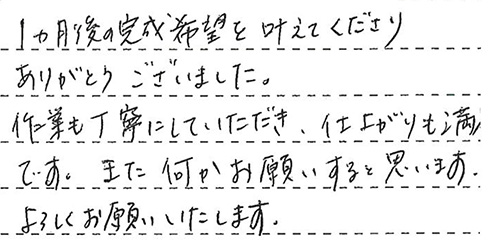 1ヵ月後の完成希望を叶えてくださり
ありがとうございました。
作業も丁寧にしていただき、仕上がりも満
です。また何かお願いすると思います。
よろしくお願いいたします。